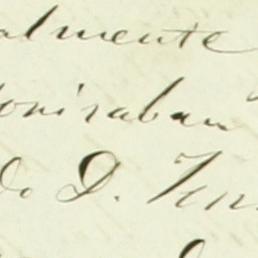 almente
onisaban
do D. Ten